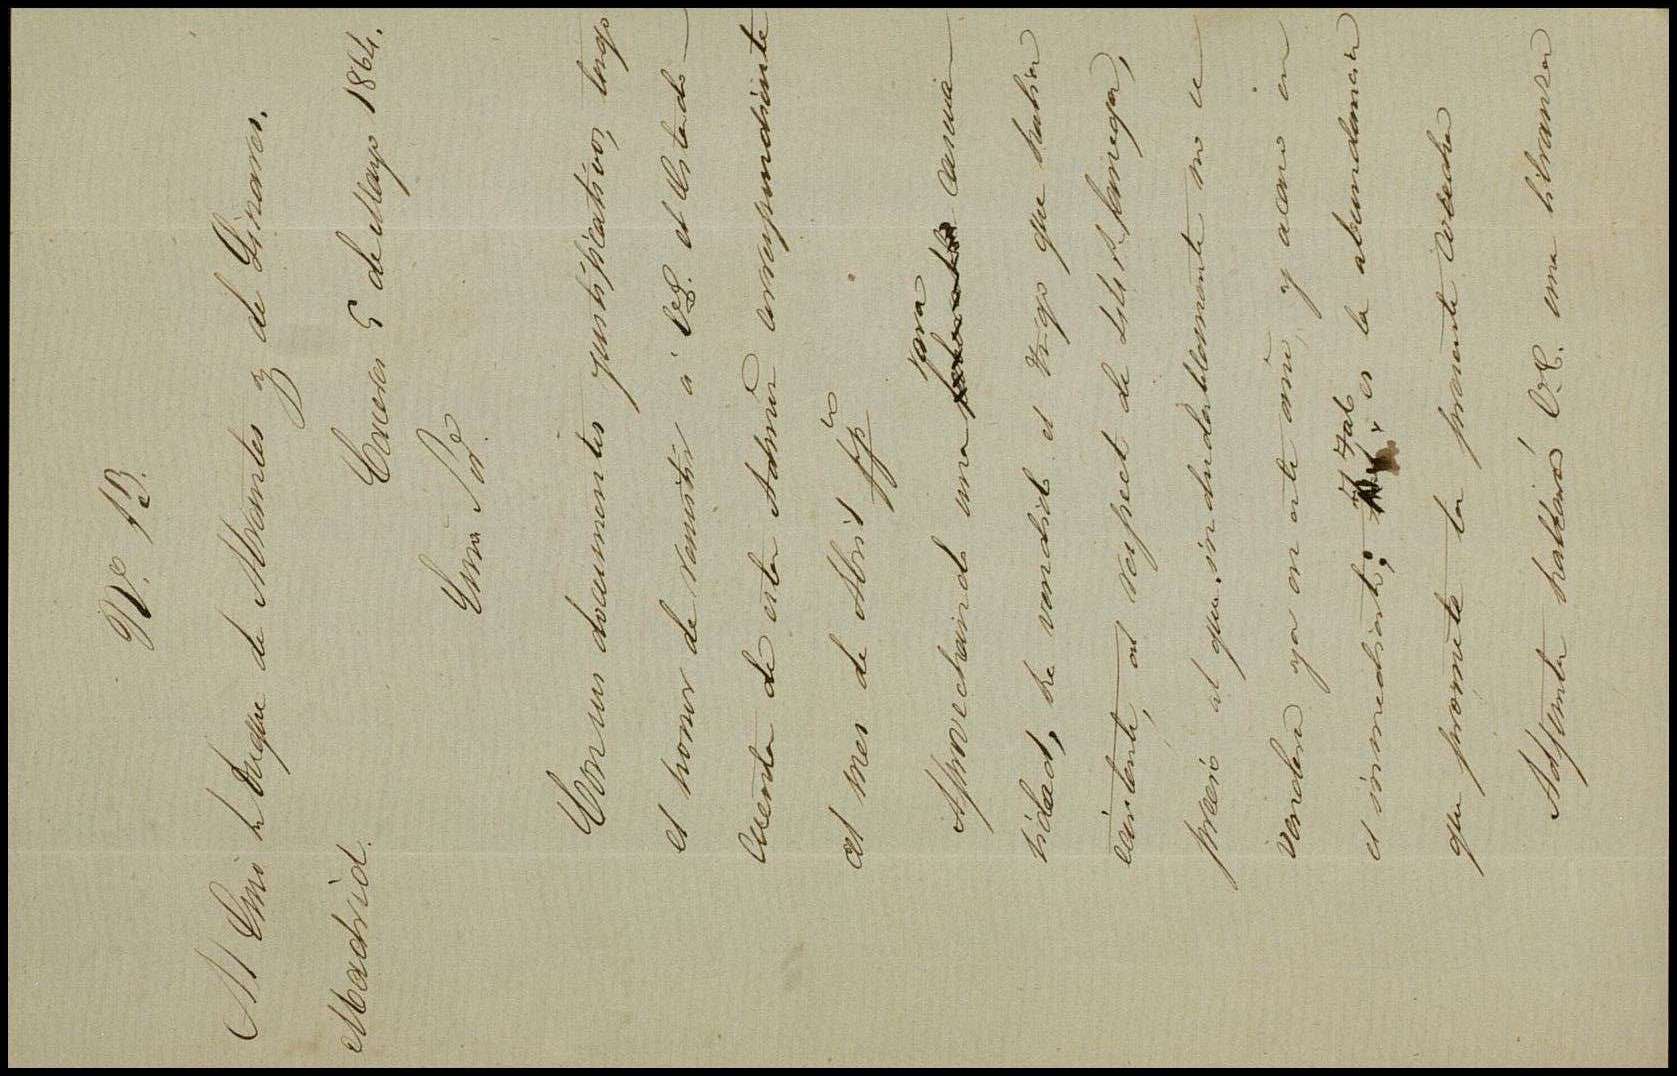 N.º 13.
Al Exmo. Sr. Duque de Abrantes y de Linares.
Madrid.
Caceres 5 de Mayo 1864.
Exmo Sor.
Con sus documentos justificativos, tengo
el honor de remitir á V.E. el Estado
cuenta de esta Admon correspondiente
al mes de Abril
Aprovechando una rara casua
lidad, he vendido el trigo que habia
existente, al respecto de fanega,
precio al que indudablemente no se
vendera ya en este año, y acaso en
el inmediato; tal es la abundancia
que promete la presente cosecha
Adjunta hallará V.E. una libranza